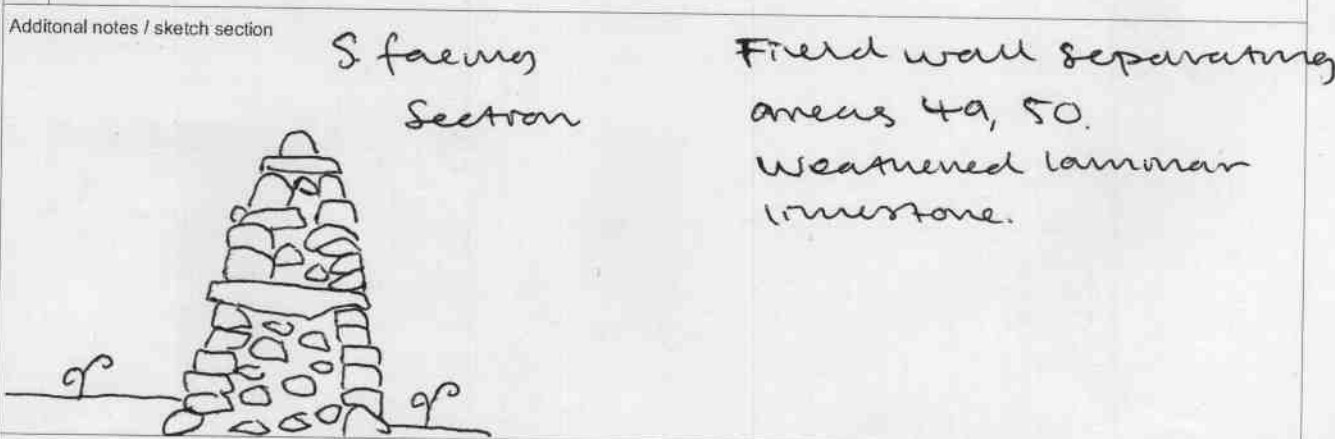 Additonal notes / sketch section
S facing
Section
Field wall separating
areas 49, 50.
Weathered laminar
limestone.